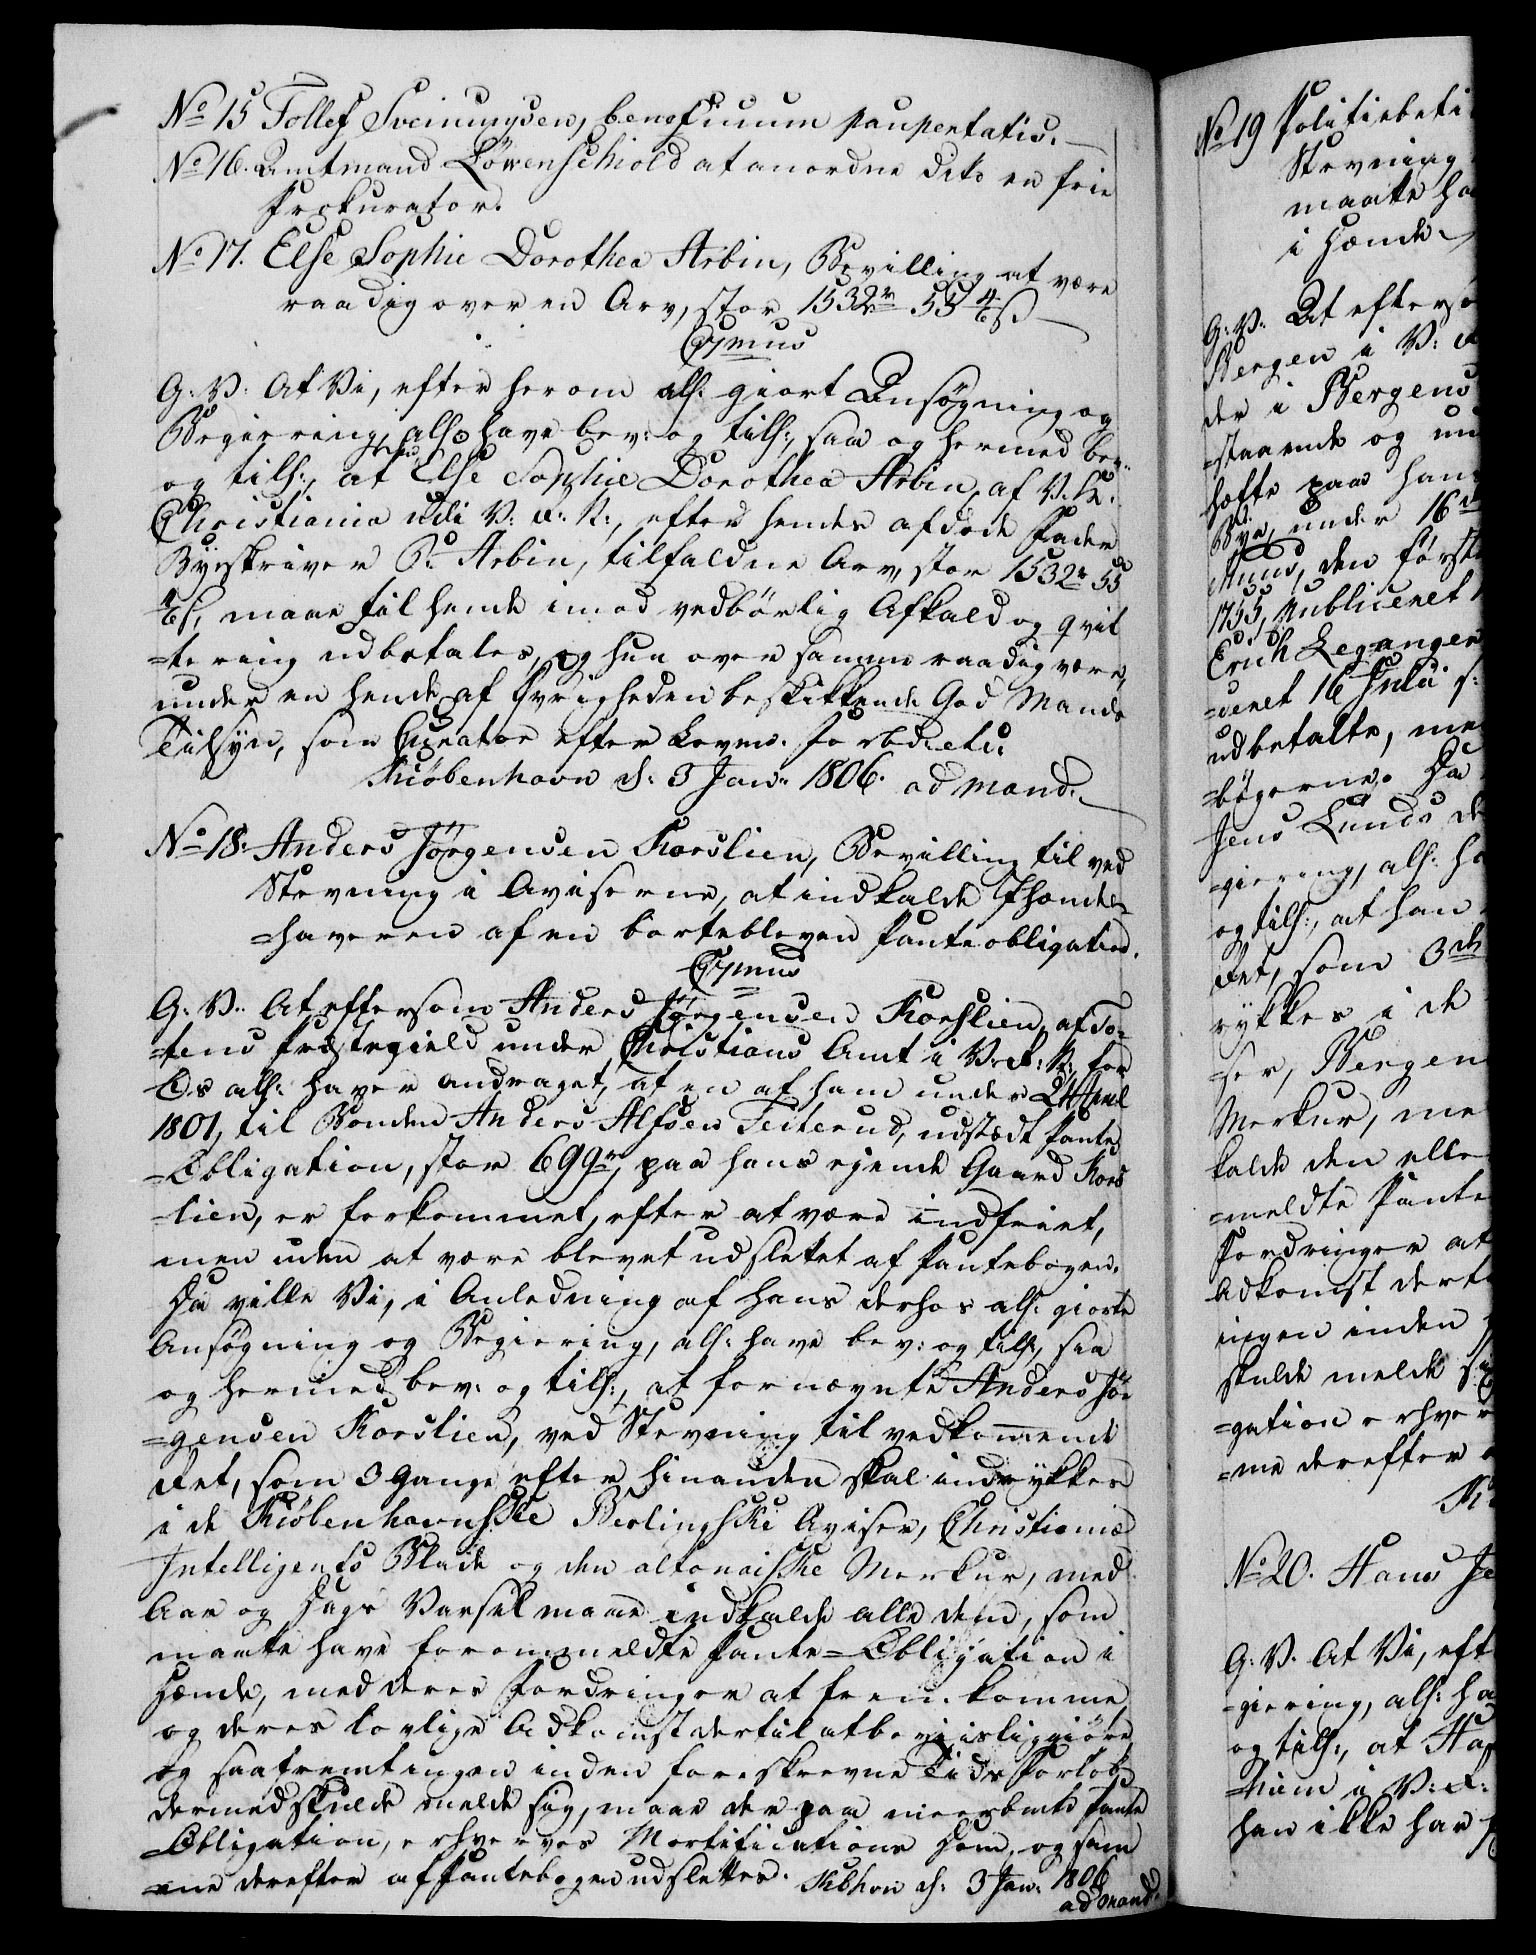 No 15 Tollef Sveinungsen, beneficium paupertatis.
No 16. Amtmand Løvenschiold at anordne dito en frie
Prokurator.
No 17. Else Sophie Dorothea Arbin, Bevilling at være
raadig over en Arv, stor 1532 rd 55 4/6 s
C7mus
G: V: At Vi, efter herom alls: giort Ansøgning og
Begiering, alls: have bev: og tils:, saa og hermed bev:
og tils:, at Else Sophie Dorothea Arbin, af V. St.
Christiania udi V: R: N:, efter hendes afdøde Fader
Byeskriver P: Arbin, tilfaldne Arv, stor 1532 rd 55
4/6 s, maae til hende imod vedbørlig Afkald og qvit
=tering udbetales, og hun over samme raadig være,
under en hende af Øvrigheden beskikkende God Mands
Tilsyn, som Curator efter Loven. Forbydende
Kiøbenhavn d: 3 Jan: 1806. ad mand.
No 18. Anders Jørgensen Korslien, Bevilling til ved
Stevning i Aviserne, at indkalde Ihænde=
=haveren af en bortebleven Panteobligation.
C7mus
G: V: At eftersom Anders Jørgensen Korslien, af To=
=tens Præstegield under Christians Amt i V: R: N: for
Os alls: haver andraget, at en af ham under 24 April
1801, til Bonden Anders Alfsen Teiterud, udstædt Pante
=Obligation, stor 699 rd, paa hans ejende Gaard Kors
=lien, er forkommet, efter at være indfriet,
men uden at være blevet udslettet af Pantebogen.
Da ville Vi, i Anledning af hans derhos alls: giorte
Ansøgning og Begiering, alls: have bev: og tils:, saa
og hermed bev: og tils:, at fornævnte Anders Jør
=gensen Korslien, ved Stevning til vedkommende
Ret, som 3 Gange efter hinanden skal indrykkes
i de Kiøbenhavnske Berlingske Aviser, Christianiæ
Intelligents Blade og den altonaiske Merkur, med
Aar og Dags Varsel maae indkalde alle dem, som
maatte have forommeldte Pante=Obligation i
Hænde, med deres Fordringer at fremkomme
og deres lovlige Adkomst dertil at bevisliggiøre,
og saafremt ingen inden foreskrevne Tids Forløb
dermed skulde melde sig, maae der paa meerbemte Pante
=Obligation, erhverves Mortifications Dom, og sam
=me derefter af Pantebogen udslettes. Kbhvn d: 3 Jan: 1806
ad mand.
No 19 Politiebeti
Stevning
maatte ha
i Hænde
G: V: At efterso
Bergen i V: R
der i Bergens
=staaende og un
hæfte paa hans
Bye, under 16
, den første
1755, Publiceret
Erich Leganger
=ceret 16 Julii
udbetalte, me
=bøgerne. Da
Jens Lunds de
=giering, alls: ha
og tils:, at han
Ret, som 3de
rykkes i de
=ser, Bergen
Merkur, me
kalde den elle
=meldte Pante
Fordringer at
Adkomst derti
ingen inden
skulde melde sig
=gation erhver
=me derefter
K
No 20. Hans Je
G: V: At Vi, eft
=giering, alls: ha
og tils:, at Ha
i V: R:
han ikke har